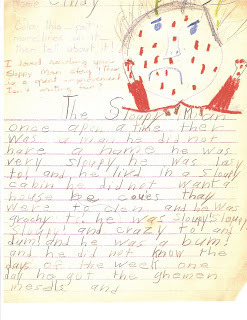 Name Cindy
Color this
sometimes on it
Then tell about it!
I loved reading your
Sloppy Man story. This
is a great improvement.
Isn't writing fun?
The Sloupy Man
once apon a time ther
was a man he did not
have a name he was
very sloupy he was lasy
to! and he livd in a sloupy
cabin he did not want a
house be coues thay
were to clen and he was
grochy to he was sloupy sloupy
sloupy! and crazy to! and
dum! and he was a bum!
and he did not know the
days of the week one
day he got the ghemen
mesals and